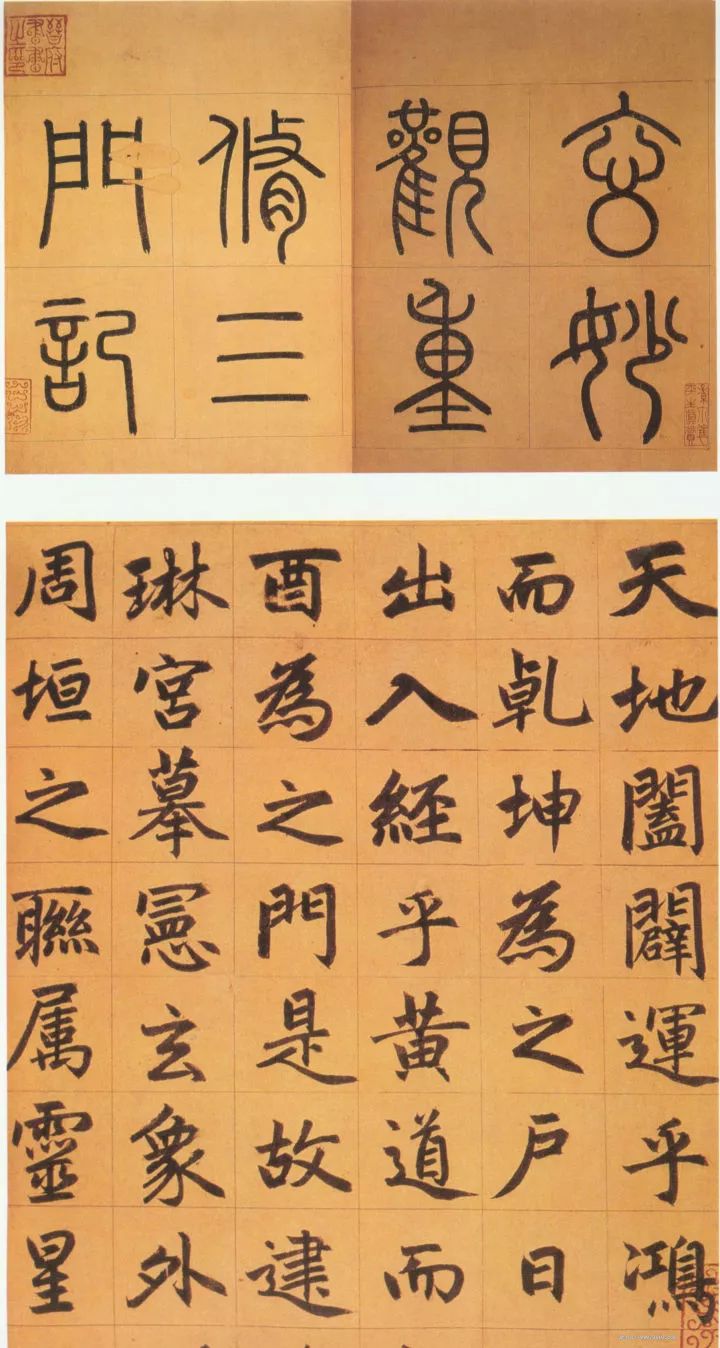 玄妙
觀重
脩三
門記
晉府書畫之印
天地闔闢運乎鴻
而乹坤為之户日
出入經乎黃道而
酉為之門是故建
琳宮摹憲玄象外
周垣之聯属靈星